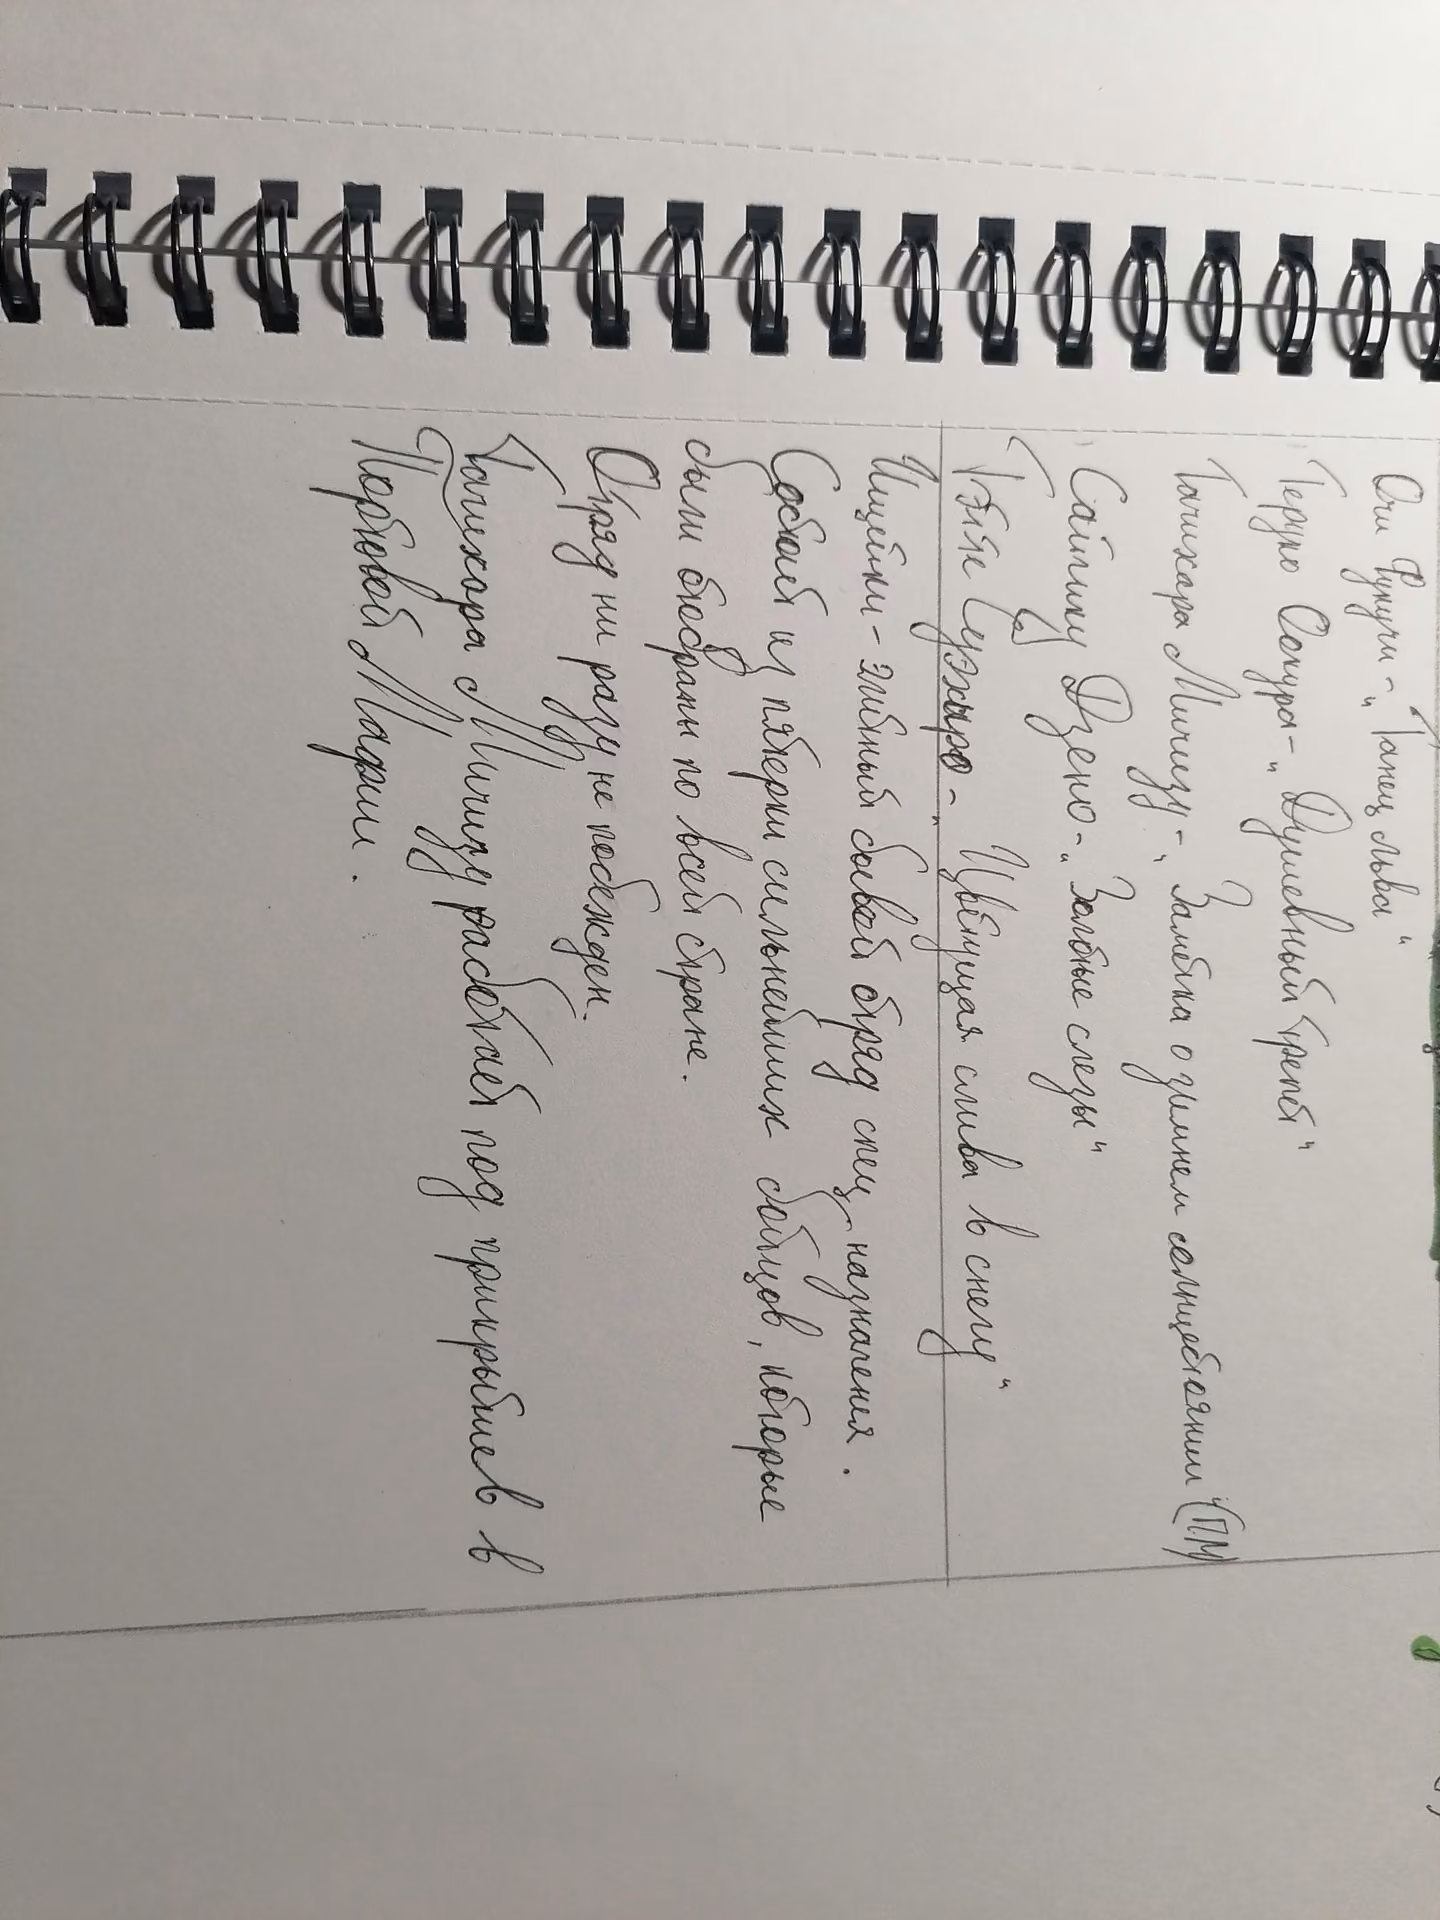 Очи Фукучи - „Танец льва"
Теруко Оокура - „Душевный трепет"
Тачихара Мичизу - „Заметка о зимнем солнцестоянии" (ПМ)
Сайгику Дзено - „Затбные слезы"
Тэтте Суэхиро - „Цветущая слива в снегу"
Ищейки - элитный боевой отряд спец. назначения.
Состоит из пятерки сильнейших бойцов, которые
были отобраны по всей стране.
Отряд ни разу не побежден.
Тачихара Мичизу работает под прикрытием в
Портовой Мафии.